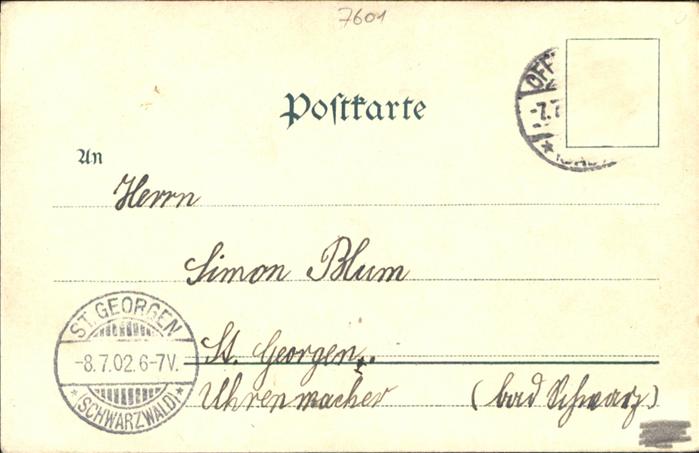 7601
Postkarte
An
Herrn
Simon Blum
St. Georgen
Uhrenmacher (bad Schwarz)
ST. GEORGEN
-8.7.02.6-7V.
*(SCHWARZWALD)*
OFF
-7.7